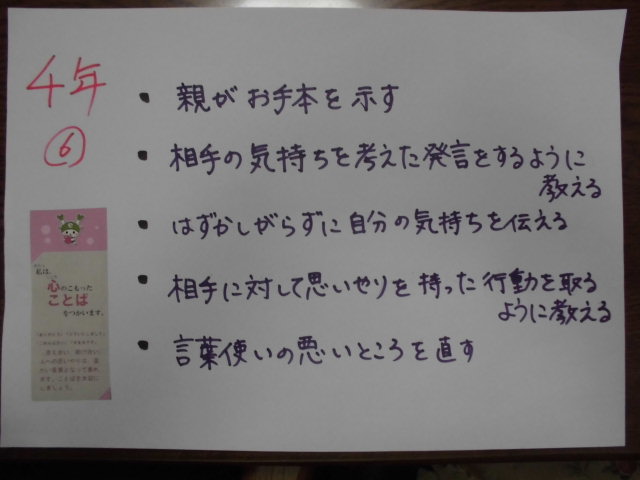 4年
⑥
・親がお手本を示す
・相手の気持ちを考えた発言をするように
教える
・はずかしがらずに自分の気持ちを伝える
・相手に対して思いやりを持った行動を取る
ように教える
・言葉使いの悪いところを直す
私は、
心のこもった
ことば
をつかいます。